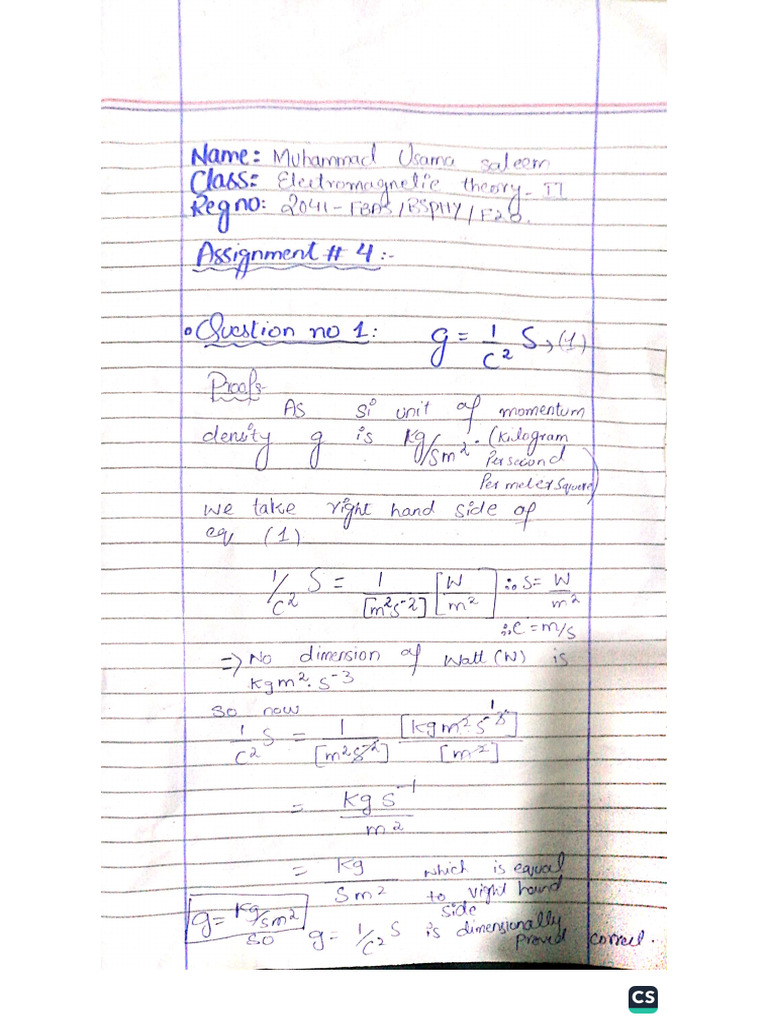 Name: Muhammad Usama saleem
Class: Electromagnetic theory-II
Reg no: 2041-FBAS/BSPHY/F20.
Assignment # 4:-
• Question no 1: g = 1/c² S → (1)
Proof:-
As Si unit of momentum
density g is kg/sm². (Kilogram
Per second
Per meter square)
we take right hand side of
eq (1)
1/c² S = 1/[m²s⁻²] [W/m²] ∴ S = W/m²
∴ C = m/s
⇒ No dimension of Watt (W) is
kgm². s⁻³
so now
1/c² S = 1/[m²s⁻²] [kgm² s⁻³]/[m²]
= Kg s⁻¹/m²
= Kg/Sm² which is equal
to right hand
side
g = kg/sm²
so g = 1/c² S is dimensionally
Proved correct.
CS